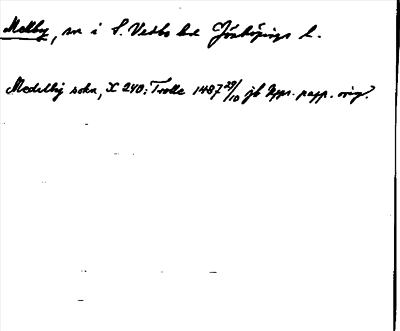 Mellby, sn i S. Vedbo hd Jönköpings l.
Medelby sokn, X 240: Trolle 1487 29/10 jb Upps. papp. orig.